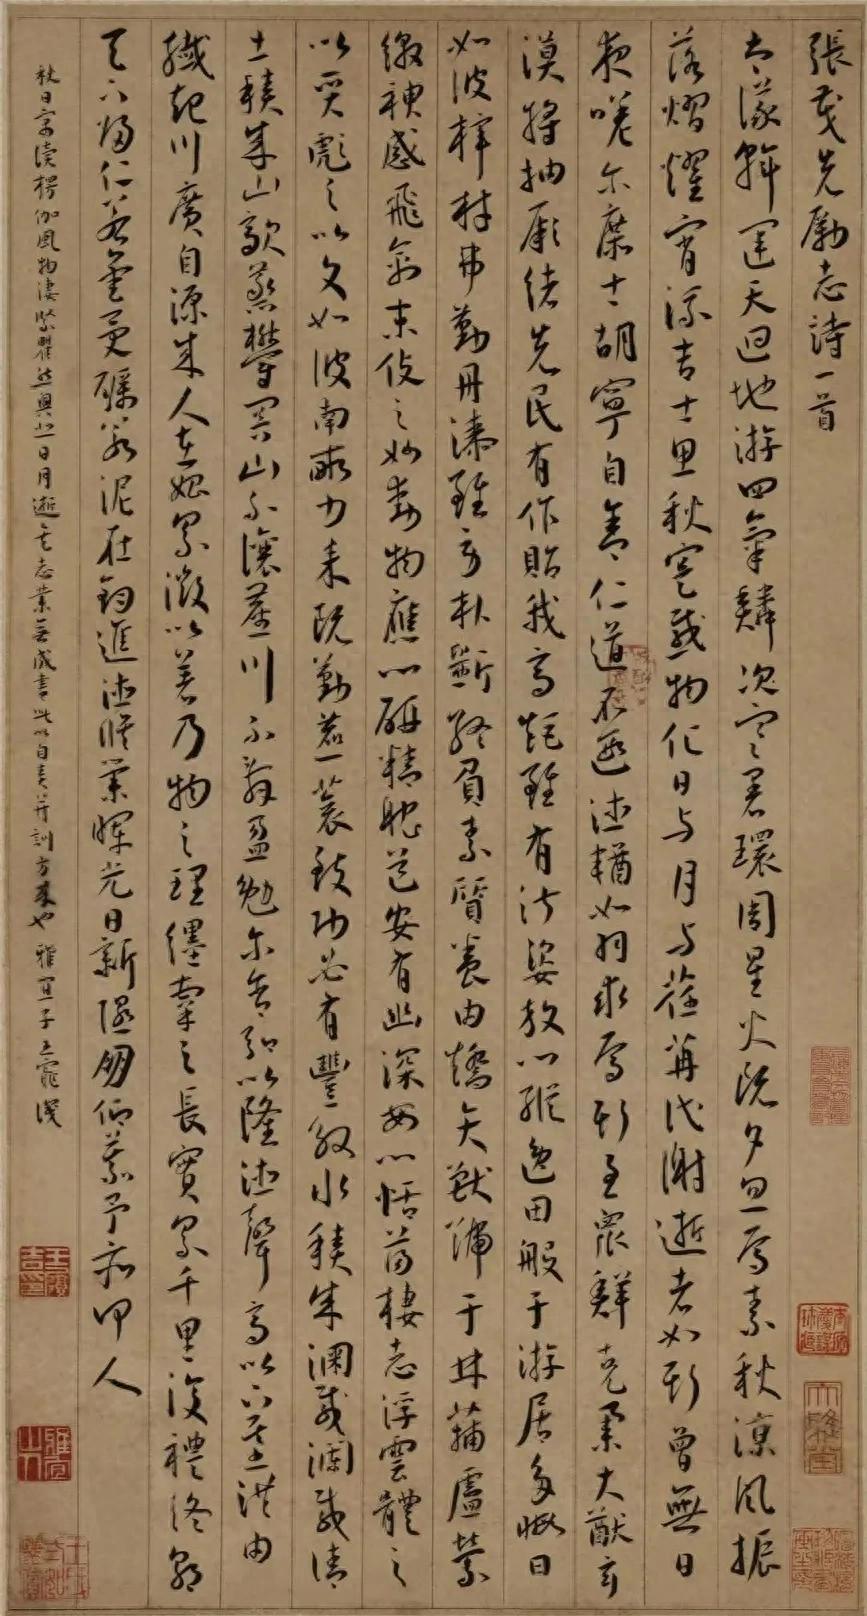 張茂先勵志詩一首
大儀斡運天迴地游四氣鱗次寒暑環周星火既夕忽焉素秋涼風振
落熠燿宵流吉士思秋寔感物化日与月与荏苒代謝逝者如斯曾無日
夜嗟尔庶士胡寧自舍仁道不遐德輶如羽求焉斯至眾鮮克舉大猷玄
漠將抽厥緒先民有作貽我高矩雖有淑姿放心縱逸田般于游居多暇日
如彼梓材弗勤丹漆雖勞朴斲終負素質養由矯矢獸號于林蒲盧縈
繳神感飛禽末伎之妙動物應心研精耽道安有幽深安心恬蕩棲志浮雲體之
以質彪之以文如彼南畝力耒既勤藨蓘致功必有豐殷水積成淵載瀾載清
土積成山歊蒸鬱冥山不讓塵川不辭盈勉尔含弘以隆德聲高以下基洪由
纖起川廣自源成人在始累微以著乃物之理纆牽之長實累千里復禮終朝
天下歸仁若金受礪若泥在鈞進德脩業暉光日新隰朋仰慕予亦何人
秋日寓讀楞伽風物淒緊瞿然興悲日月逝矣志業無成書此以自責并訓方來也 雅宜子王寵識
王履吉印
雅宜山人
大雅堂